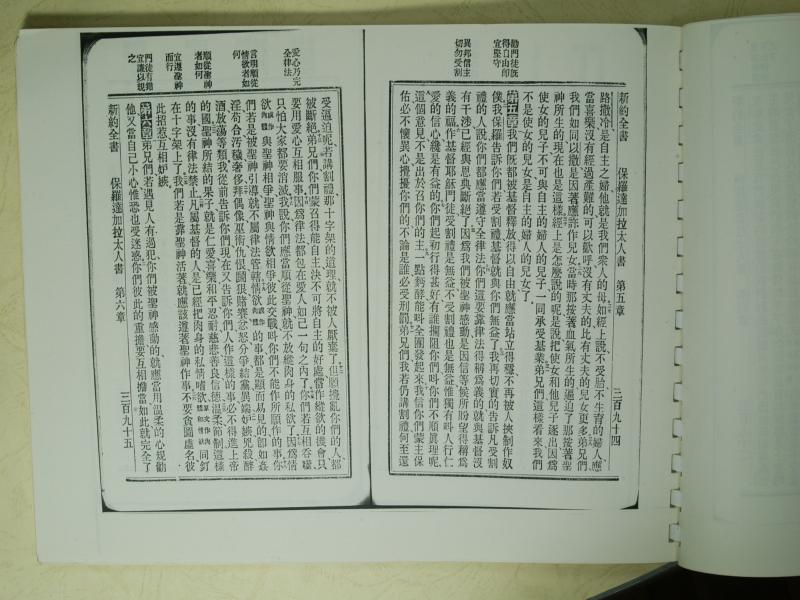 新約全書 保羅達加拉太人書 第五章 三百九十四
勸門徒旣
得自由卽
宜堅守
異邦信主
切勿受割
路撒冷是自主之婦他就是我們衆人的母如經上說不受胎不生育的婦人應
當喜樂沒有經過產難的可以歡呼沒有丈夫的比有丈夫的兒女更多弟兄們
我們如同以撒是因著應許作兒女當時那按著血氣所生的逼迫了那按著聖
神所生的現在也是這樣經上是怎麼說的呢是說把使女和他兒子逐出因爲
使女的兒子不可與自主的婦人的兒子一同承受基業弟兄們這樣看來我們
不是使女的兒女是自主的婦人的兒女了
第五章 我們旣都被基督釋放得以自由就應當站立得穩不再被人挾制作奴
僕我保羅告訴你們若受割禮基督就與你們無益了我再切實的告訴凡受割
禮的人說你們都應當遵守全律法你們這要靠律法得稱爲義的就與基督沒
有干涉已經與恩典斷絕了我們被聖神感動是因信等候所盼望得稱爲
義的福作基督耶穌門徒受割禮是無益不受割禮也是無益惟獨有叫人行仁
愛的信心纔是有益的你們起初行得甚好有誰攔阻你們叫你們不順眞理呢
這個意見不是出於召你們的主一點麪酵能叫全團發起來我信你們蒙主保
佑必不懷異心攪擾你們的不論是誰必受刑罰弟兄們我若仍講割禮何至還
愛心乃完
全律法
言明順從
情慾者如
何
順從聖神
者如何
宜遵聖神
而行
門徒有錯
宜議以規
之
受逼迫呢若講割禮那十字架的道理就不被人厭棄了但願擾亂你們的人都
被斷絕弟兄們你們蒙召得能自主決不可將自主的好處當作縱慾的機會只
要用愛心互相服事因爲律法都包在愛人如己一句之內了你們若互相吞噬
只怕大家都要消滅我說你們應當順從聖神就不放縱肉身的私慾了因爲情
慾與聖神相爭聖神與情慾相爭彼此交戰叫你們不能作所願作的事你
們若是被聖神引導就不屬律法管轄情慾的事都是顯而易見的卽如姦
淫苟合汚穢奢侈拜偶像巫術仇恨鬬狠賭賽忿怒分爭結黨異端嫉妬兇殺醉
酒放蕩等類我從前告訴你們現在又告訴你們人作這樣的事必不得進上帝
的國聖神所結的果子就是仁愛喜樂和平忍耐慈悲善良信德溫柔節制這樣
的事沒有律法禁止凡屬基督的人是已經把肉身的私情嗜慾同釘
在十字架上了我們若是靠聖神活著就應該遵著聖神作事不要貪圖虛名彼
此招惹互相嫉妬
第六章 弟兄們若遇見人有過犯你們被聖神感動的就應當用溫柔的心規勸
他又當自己小心惟恐也受迷惑你們彼此的重擔要互相擔當如此就完全了
新約全書 保羅達加拉太人書 第六章 三百九十五